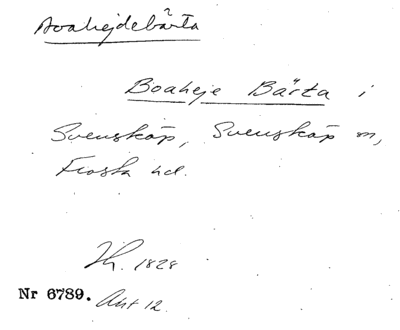 Boahejdebärta
Boaheje Bärta i
Svensköp, Svensköp sn,
Frosta hd.
Th. 1828
Nr 6789. Ant 12.